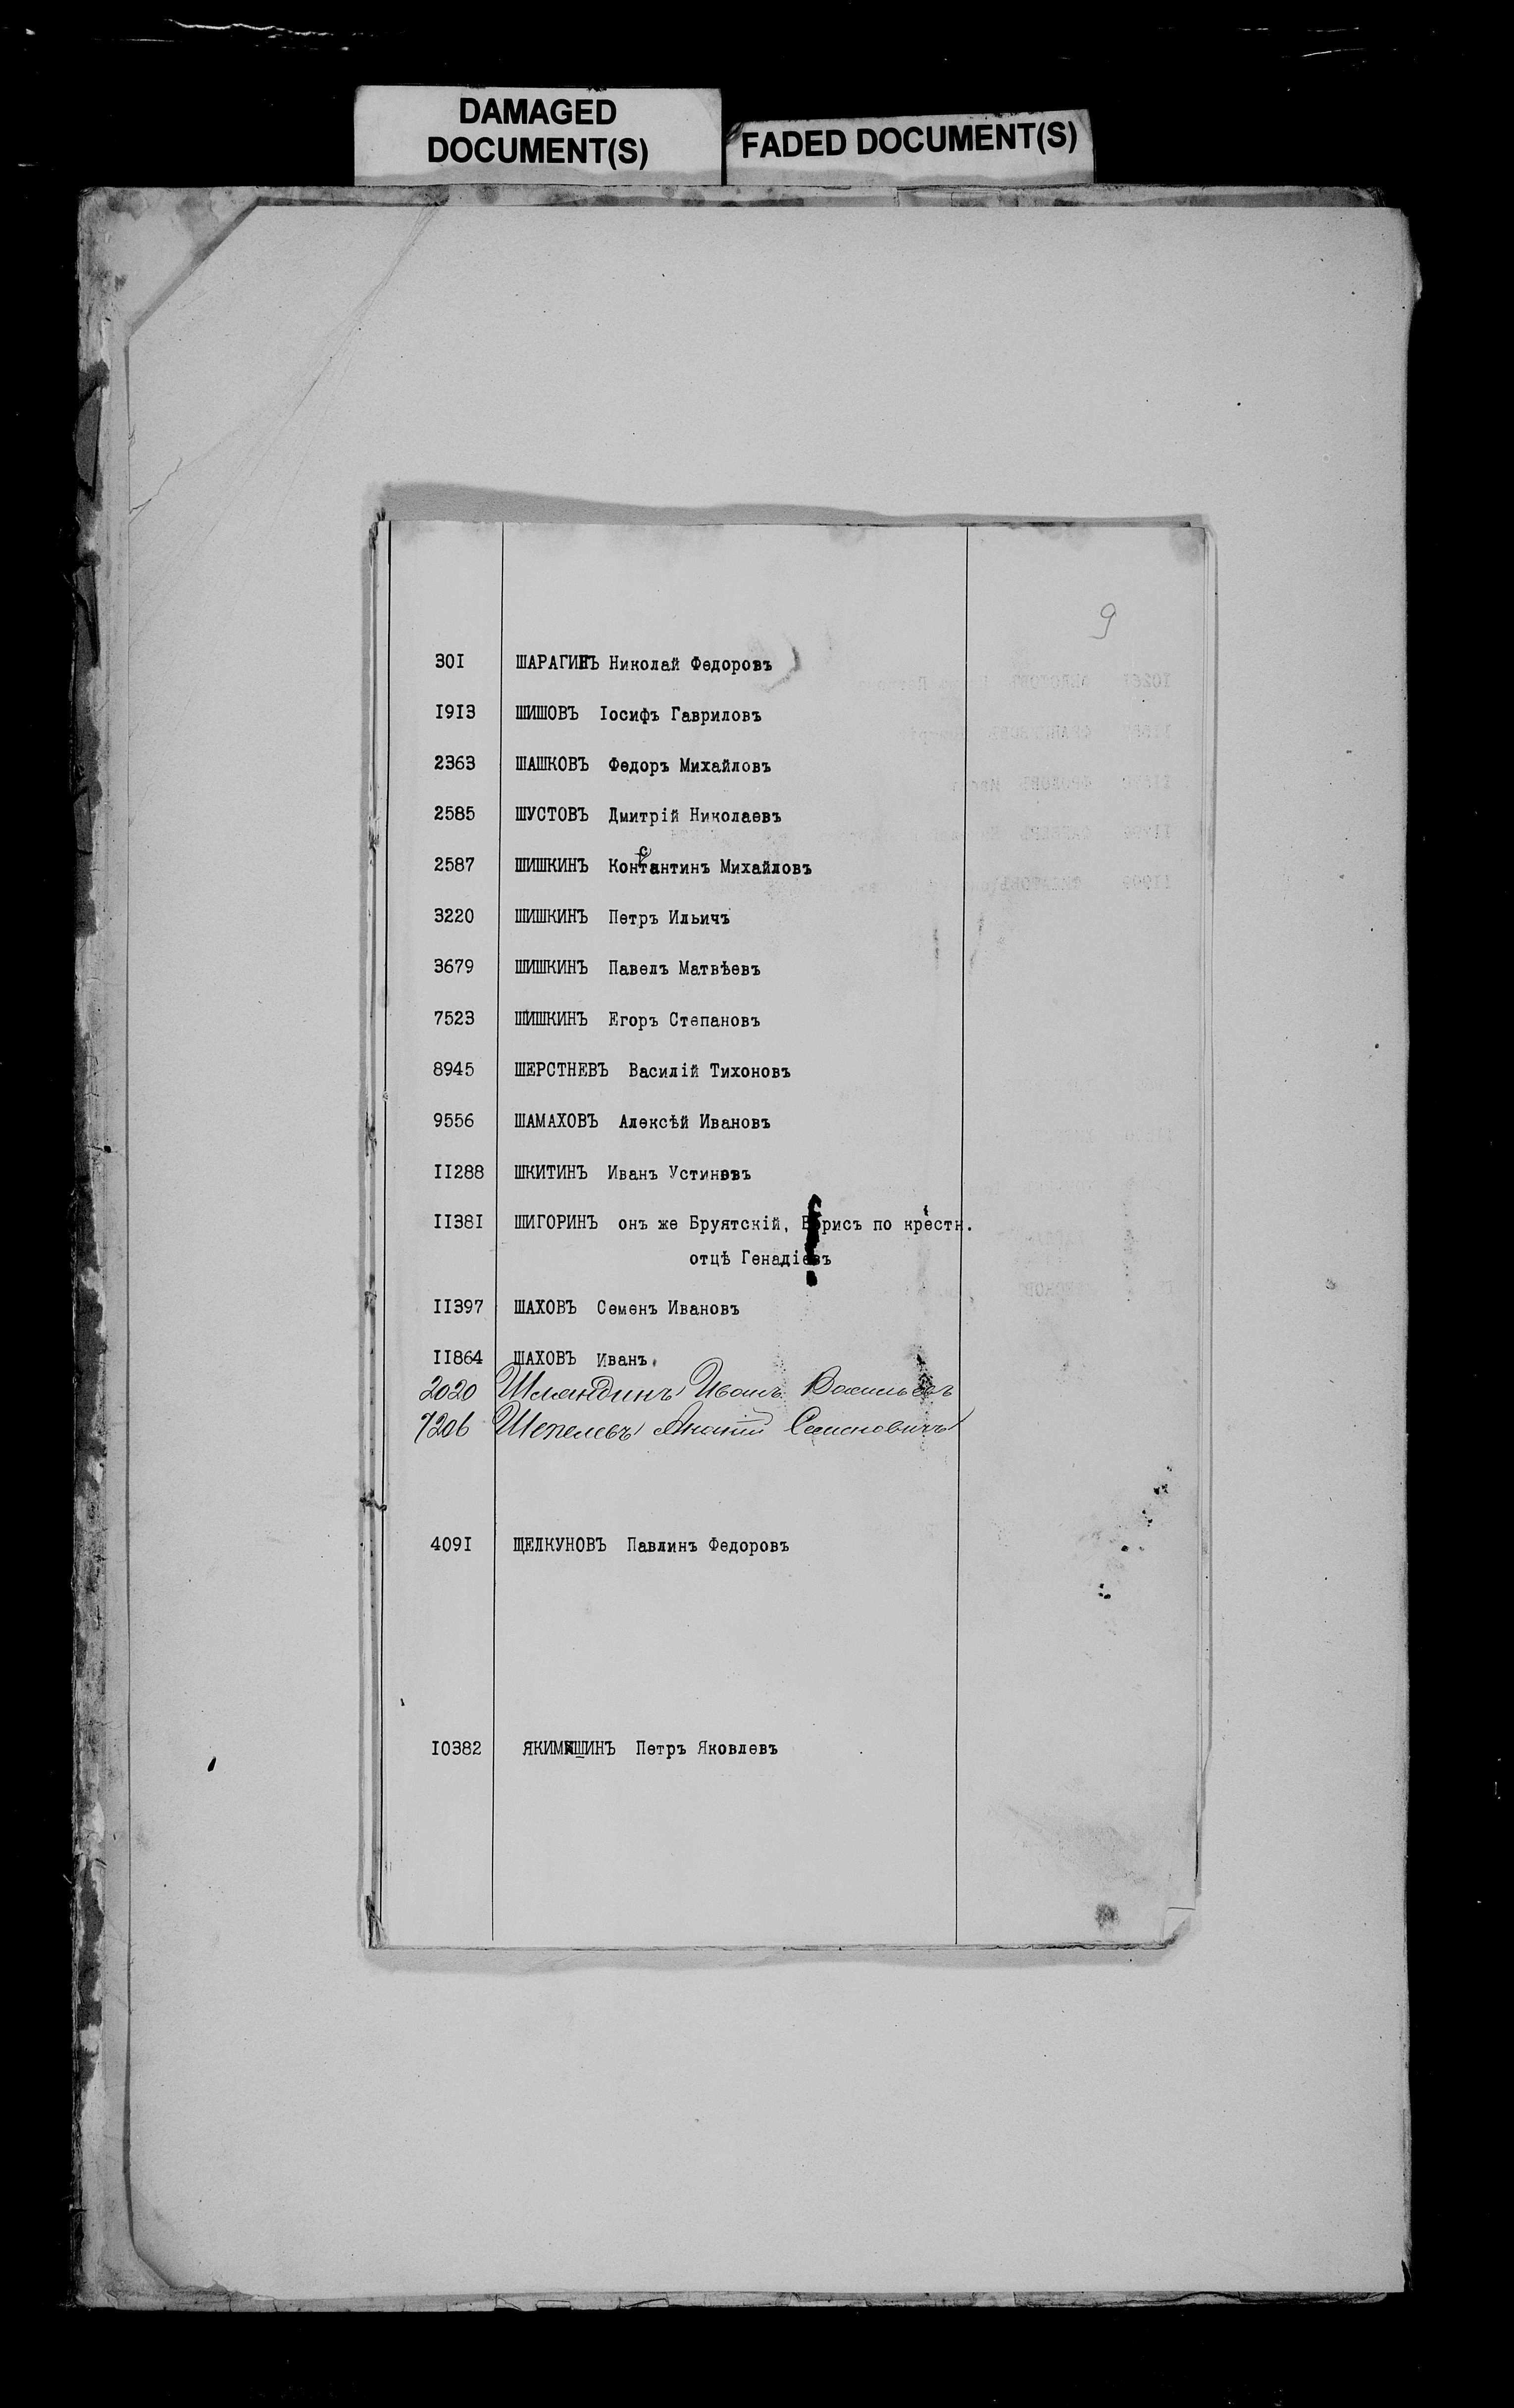 DAMAGED
DOCUMENT(S)
FADED DOCUMENT(S)
9
301 ШАРАГИНЪ Николай Федоровъ
1913 ШИШОВЪ Іосифъ Гавриловъ
2363 ШАШКОВЪ Федоръ Михайловъ
2585 ШУСТОВЪ Дмитрій Николаевъ
2587 ШИШКИНЪ Константинъ Михайловъ
3220 ШИШКИНЪ Петръ Ильичъ
3679 ШИШКИНЪ Павелъ Матвѣевъ
7523 ШИШКИНЪ Егоръ Степановъ
8945 ШЕРСТНЕВЪ Василій Тихоновъ
9556 ШАМАХОВЪ Алексѣй Ивановъ
11288 ШКИТИНЪ Иванъ Устиновъ
11381 ШИГОРИНЪ онъ же Бруятскій, Борисъ по крестн.
отцѣ Генадіевъ
11397 ШАХОВЪ Семенъ Ивановъ
11864 ШАХОВЪ Иванъ
2020 Шмандинъ Иванъ Васильевъ
7206 Шепелевъ Семеновичъ
4091 ЩЕЛКУНОВЪ Павлинъ Федоровъ
10382 Петръ Яковлевъ